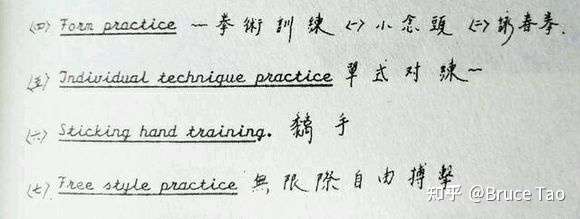 (四) Form practice — 拳術訓練 (一) 小念頭 (二) 詠春拳.
(五) Individual technique practice 單式对練—
(六) Sticking hand training. 黐手
(七) Free style practice 無限際自由搏擊
知乎 @Bruce Tao